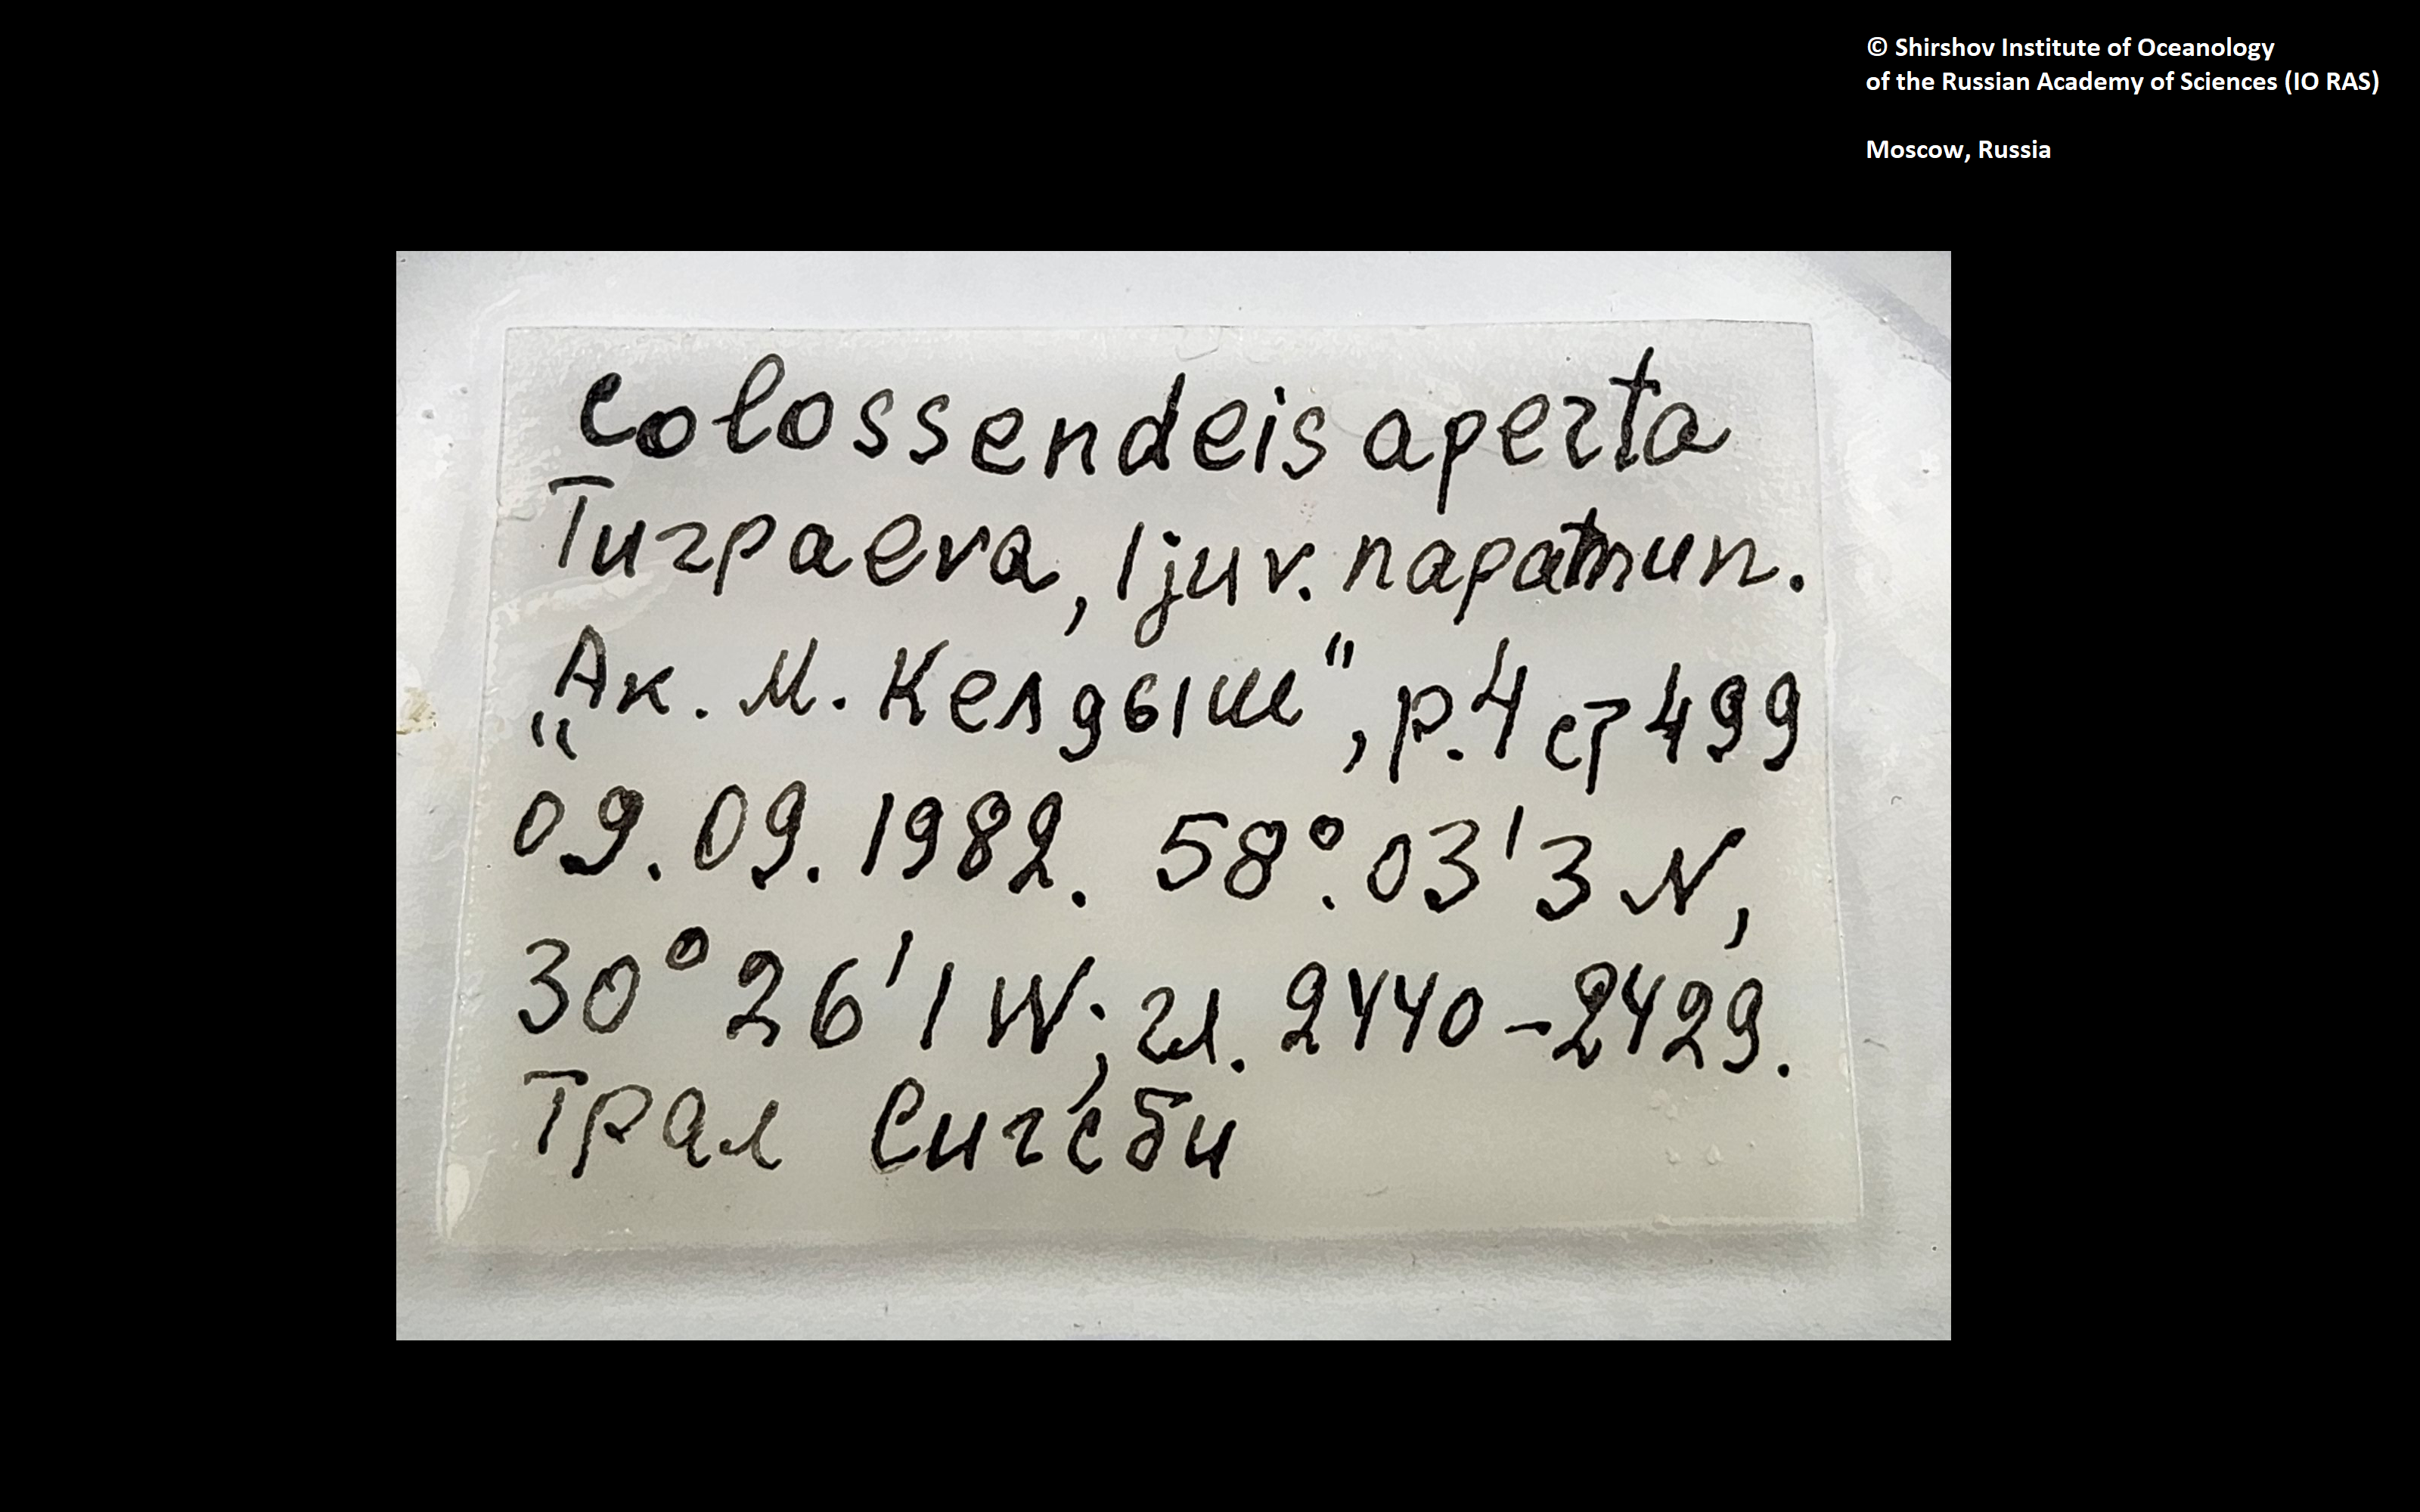 © Shirshov Institute of Oceanology
of the Russian Academy of Sciences (IO RAS)
Moscow, Russia
Colossendeis aperta
Turpaeva, 1 juv. паратип.
„Ак. М. Келдыш", р.4 ст 499
09.09.1982. 58°.03'3 N,
30° 26'1 W; гл. 2440-2429.
Трал Сигсби